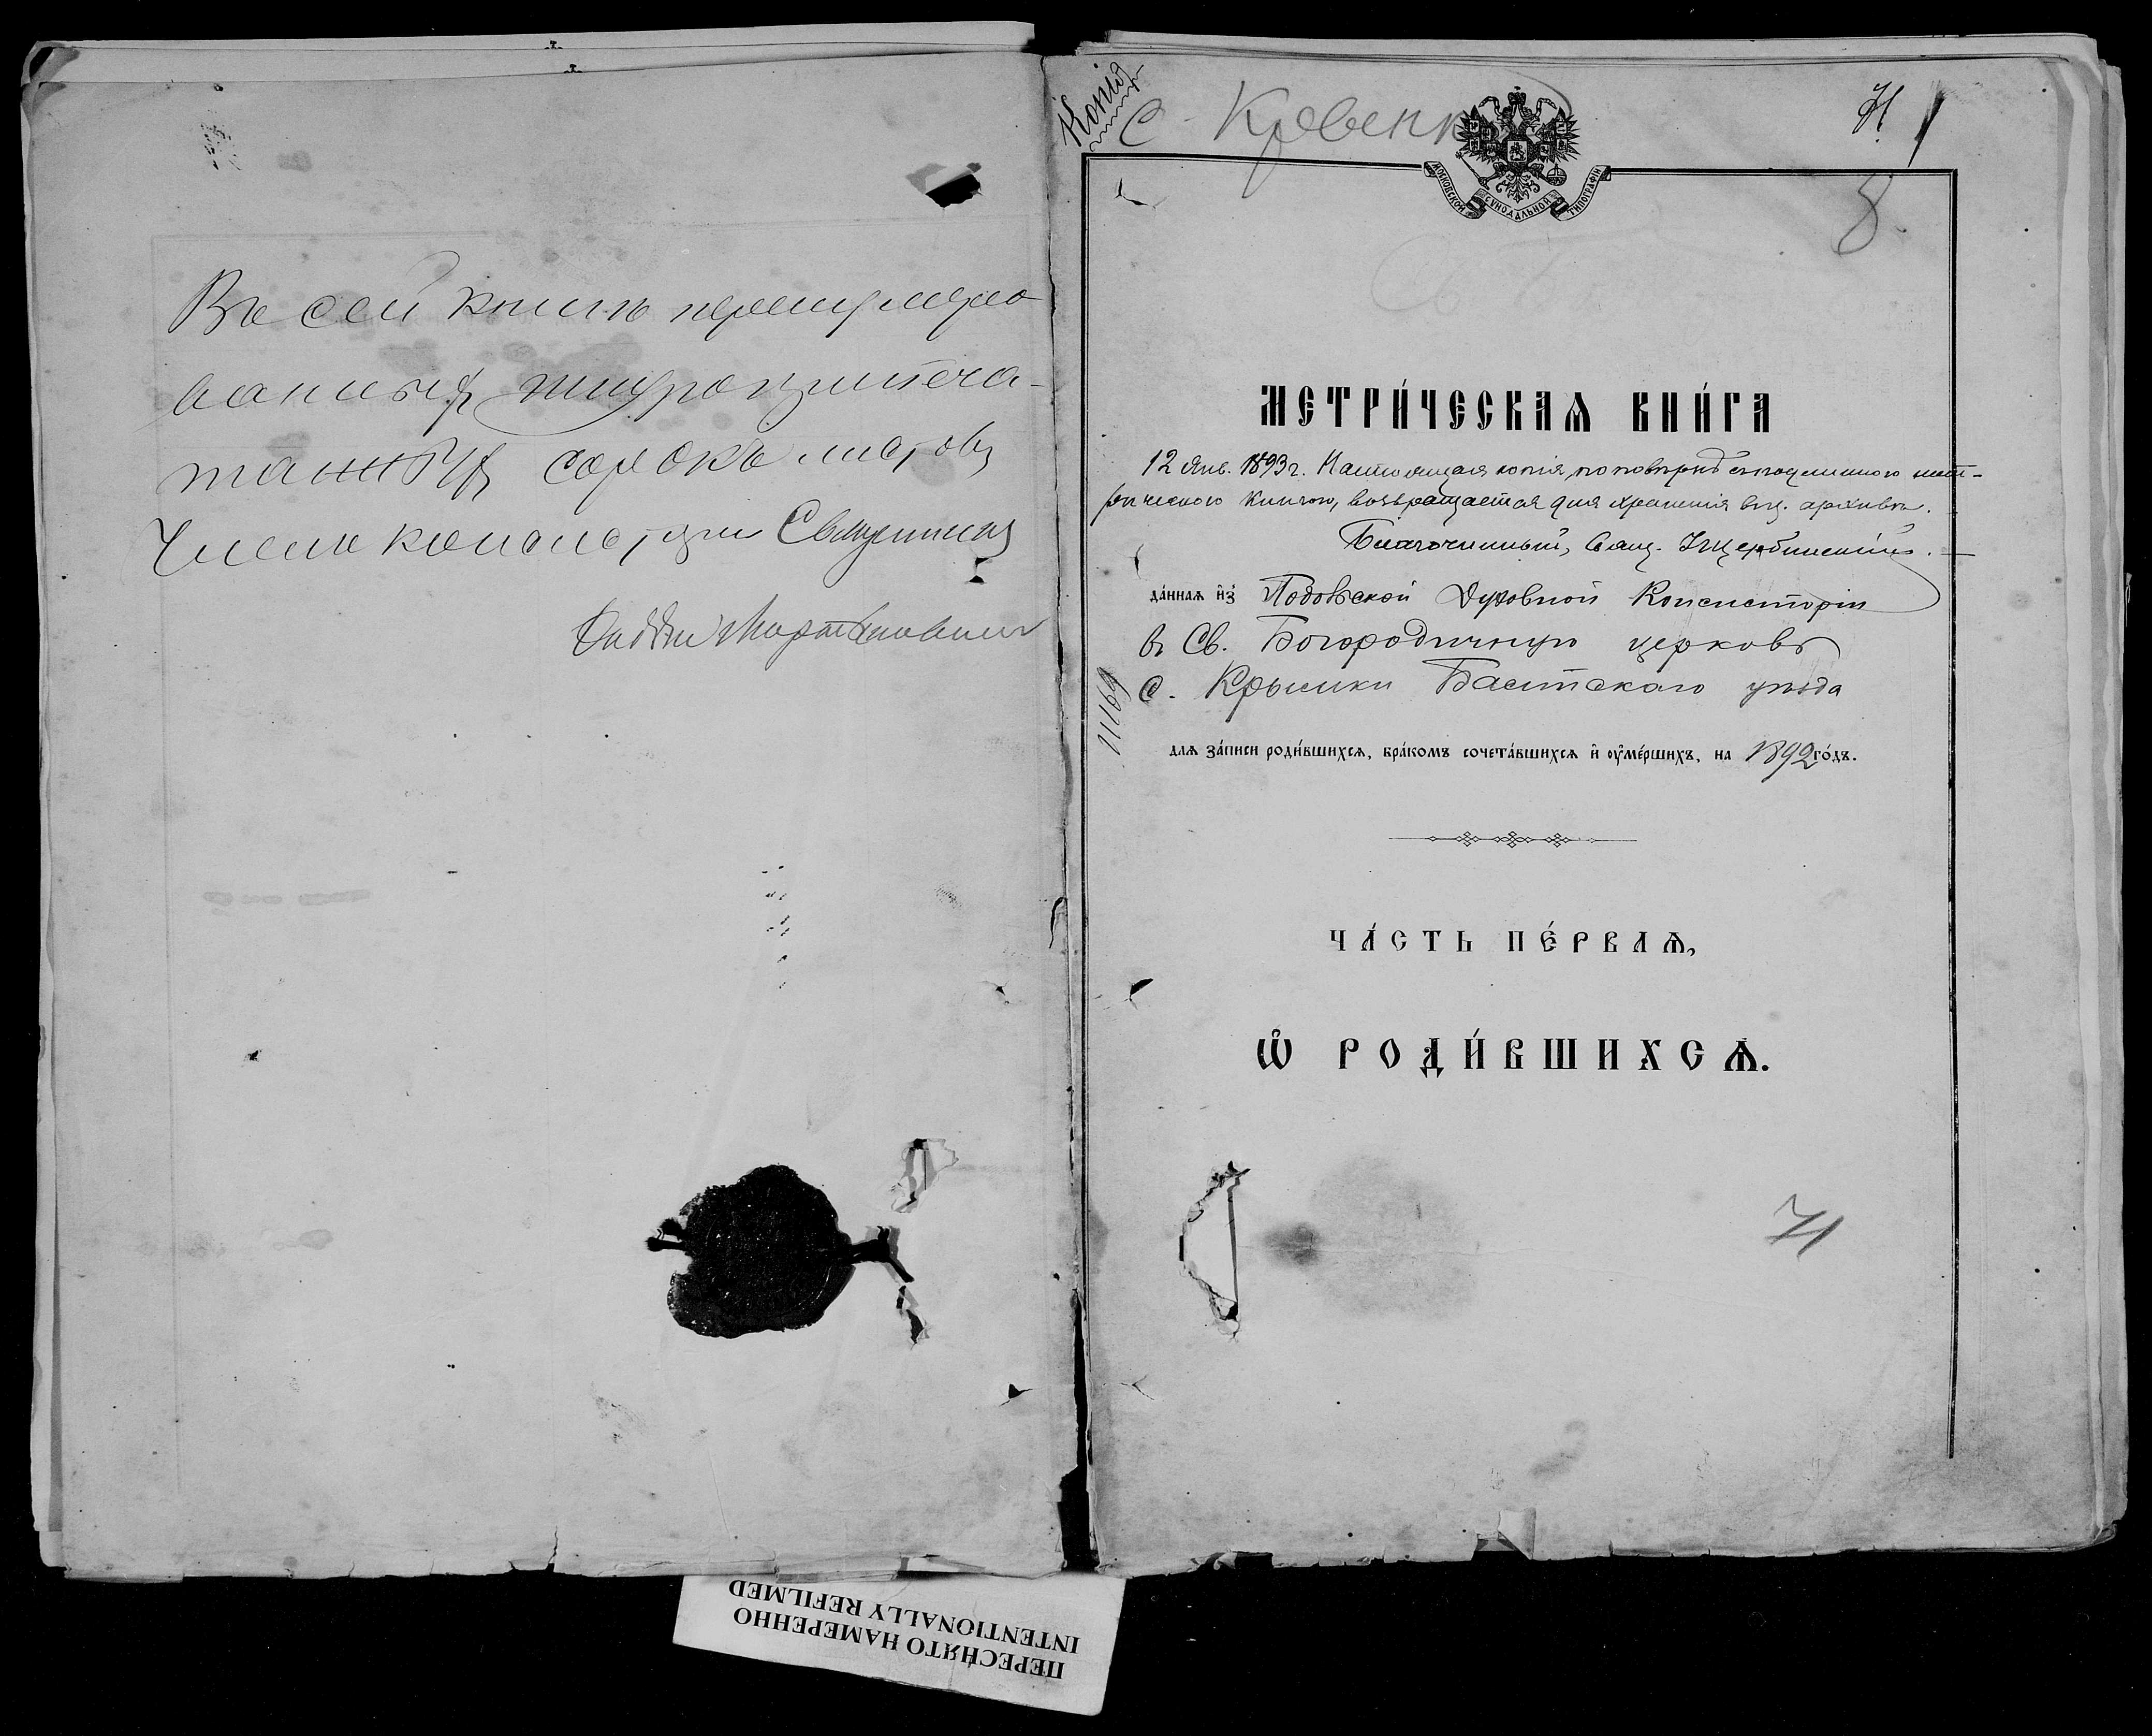 Въ сей книгѣ перенумеро
ванныхъ прошнуропечата-
танныхъ сорокъ листовъ
Священникъ
Копія
С. Кревенк
И. 1
МОСКОВСКОЙ СѴНОДАЛЬНОЙ ТИПОГРАФІИ
8.
МЕТРИ́ЧЕСКАѦ КНИ́ГА
12 Янв. 1893 г. Настоящая копія, по повѣркѣ съ подлинною мет-
рическою книгою, возвращается для храненія въ ц. архивѣ.
Благочинный, Свящ. Щербинскій.
да́ннаѧ и҆з̾ Подольской Духовной Консисторіи
въ Св. Богородичную церковь
с. Крышки Балтскаго уѣзда
11169
длѧ за́писи роди́вшихсѧ, бра́комъ сочета́вшихсѧ и҆ ѹ҆ме́ршихъ, на 1892 го́дъ.
ЧА́СТЬ ПЕ́РВАѦ,
Ѽ РОДИ́ВШИХСѦ.
71
ПЕРЕСНЯТО НАМЕРЕННО
INTENTIONALLY REFILMED